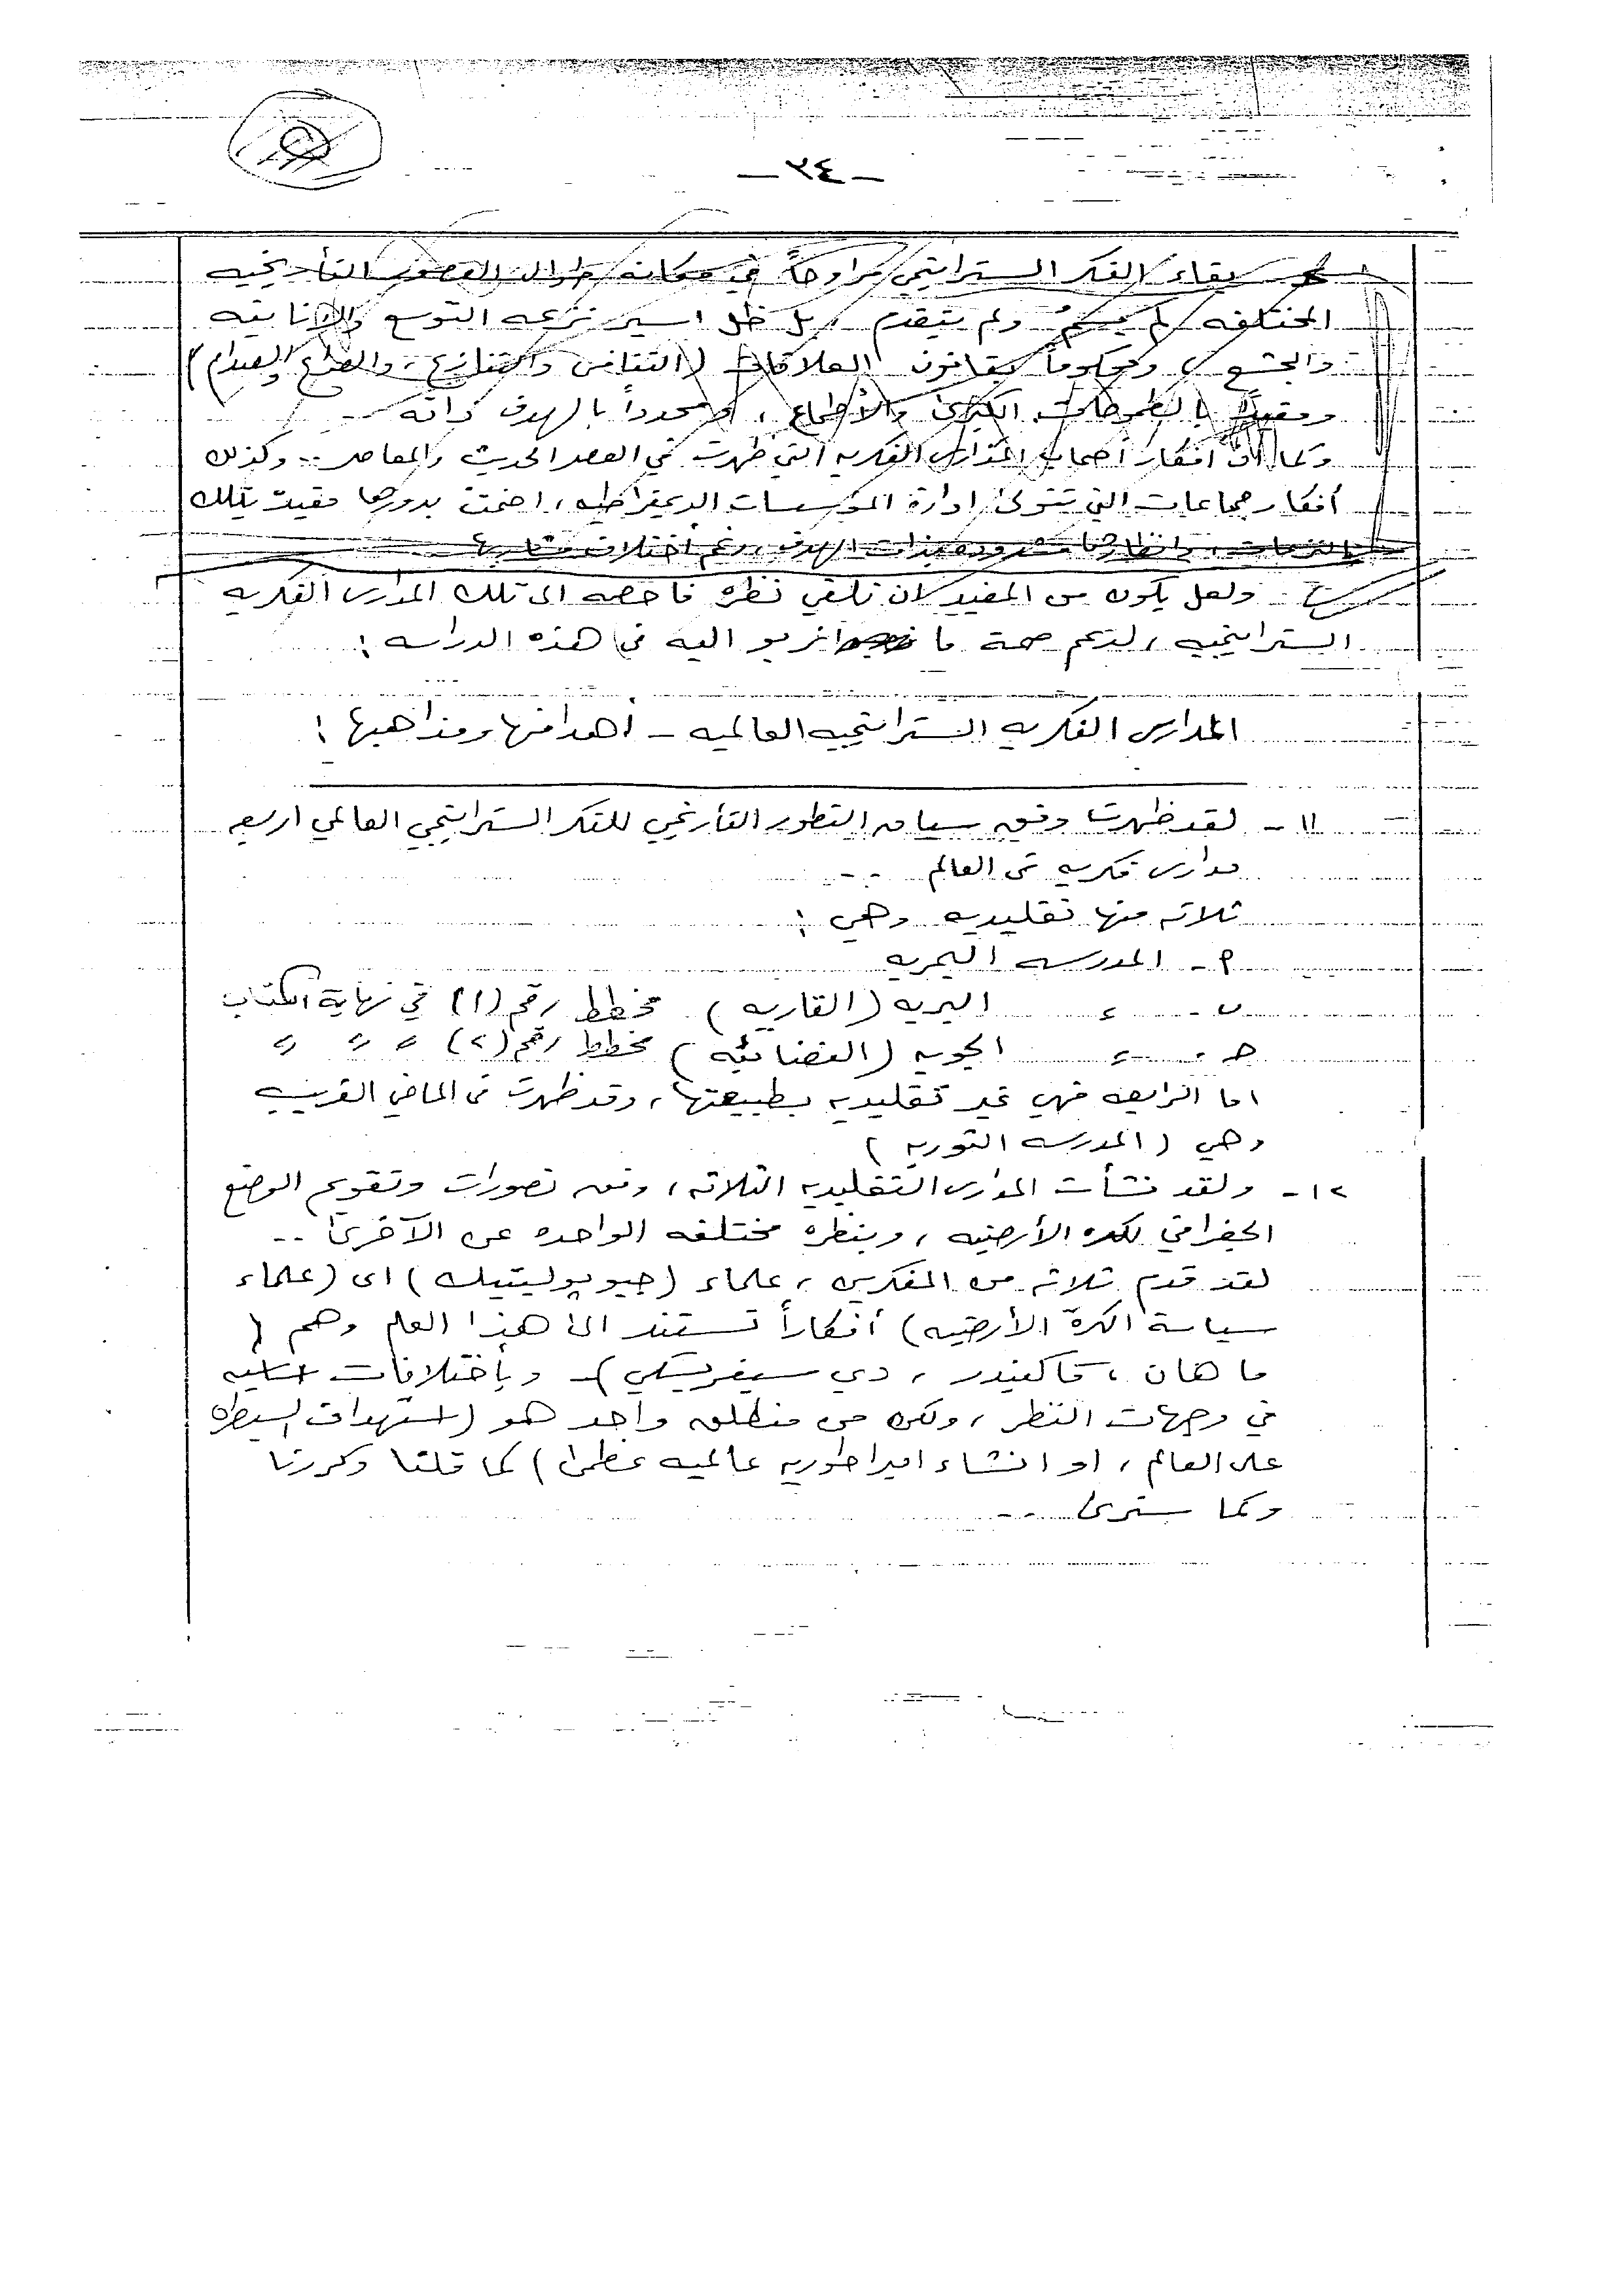 - ٢٤ -
بقاء الفكر الستراتيجي مراوحاً في مكانه طوال العصور التأريخيه
المختلفه لم يسمُ ولم يتقدم ، بل ظل اسير نزعه التوسع والانانيه
والجشع ، ومحكوماً بقانون العلاقات (التنافس والتنازع ، والصراع والصدام)
ومقيداً بالطموحات الكبرى والأطماع ، ومحدداً بالهدف ذاته ..
وكما ان افكار أصحاب المدارس الفكريه التي ظهرت في العصر الحديث والمعاصر .. وكذلك
أفكار جماعات التي تتولى ادارة المؤسسات الديمقراطيه ، اضحت بدورها مقيدة بتلك
النزعات ، وانظارها مشدوده بذات الهدف ، رغم اختلاف مشاربها
ولعل يكون من المفيد ان نلقي نظره فاحصه الى تلك المدارس الفكريه
الستراتيجيه ، لدعم صحة ما نربو اليه في هذه الدراسه :
المدارس الفكريه الستراتيجيه العالميه - أهدافها ومذاهبها :
١١ - لقد ظهرت وفق سياق التطور التأريخي للفكر الستراتيجي العالمي اربعه
مدارس فكريه في العالم ..
ثلاثه منها تقليديه وهي :
أ - المدرسه البحريه
ب - ء البريه (القاريه) مخطط رقم (١) في نهاية الكتاب
جـ - ء الجويه (الفضائيه) مخطط رقم (٢) ء ء ء
اما الرابعه فهي غير تقليديه بطبيعتها ، وقد ظهرت في الماضي القريب
وهي (المدرسه الثوريه)
١٢ - ولقد نشأت المدارس التقليديه الثلاثه ، وفق تصورات وتقويم الوضع
الجغرافي للكره الأرضيه ، وبنظره مختلفه الواحده عن الآخرى ..
لقد قدم ثلاثه من المفكرين ، علماء (جيوپوليتيك) اى (علماء
سياسة الكرة الأرضيه) أفكاراً تستند الى هذا العلم وهم (
ماهان ، ماكيندر ، دي سيفريسكي) - وبأختلافات
في وجهات النظر ، ولكن من منطلق واحد هو (استهداف السيطره
على العالم ، او انشاء امبراطوريه عالميه عظمى) كما قلنا وكررنا
وكما سنرى ..